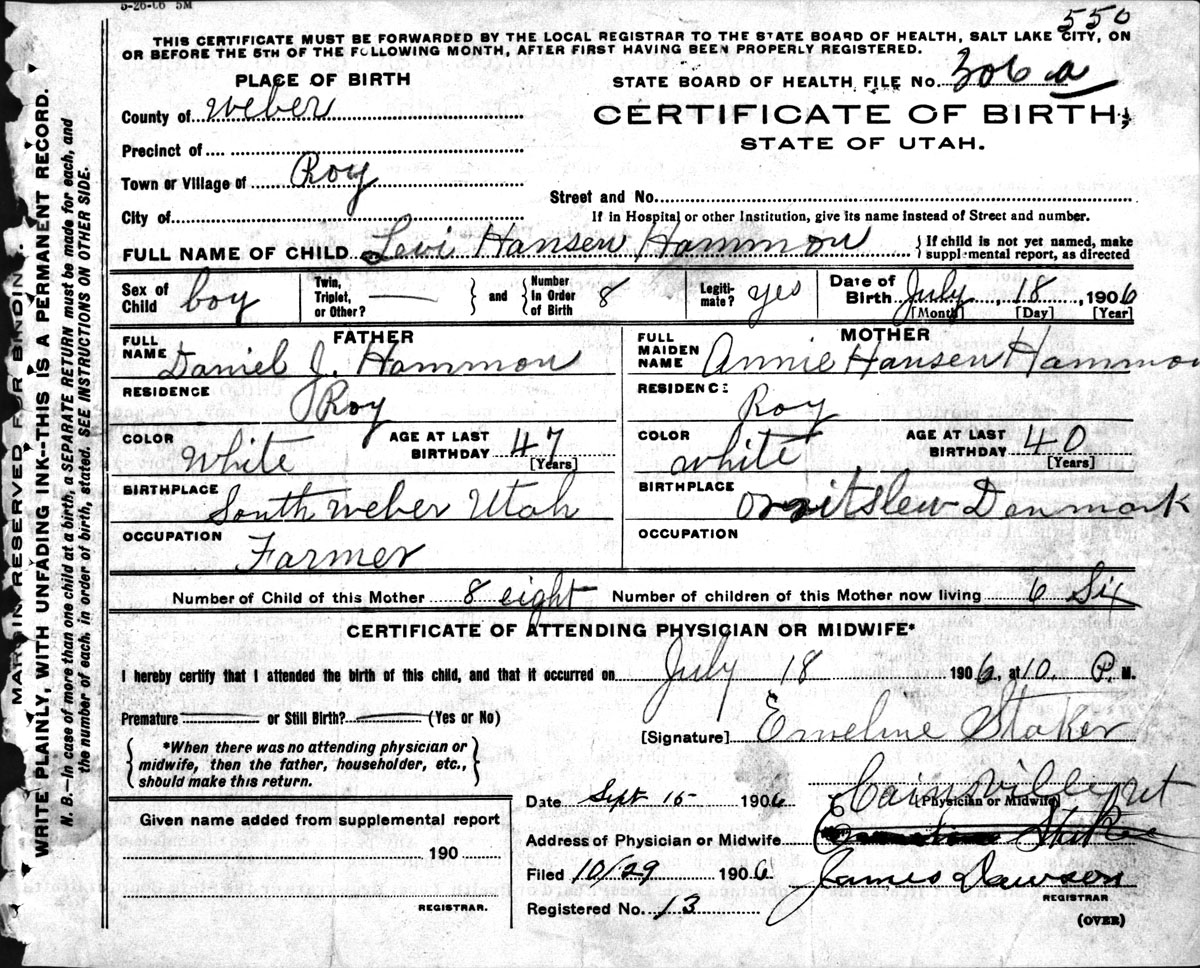 5-26-06 5M
550
THIS CERTIFICATE MUST BE FORWARDED BY THE LOCAL REGISTRAR TO THE STATE BOARD OF HEALTH, SALT LAKE CITY, ON
OR BEFORE THE 5TH OF THE FOLLOWING MONTH, AFTER FIRST HAVING BEEN PROPERLY REGISTERED.
PLACE OF BIRTH
STATE BOARD OF HEALTH FILE No. 306 a
County of Weber
CERTIFICATE OF BIRTH
STATE OF UTAH.
Precinct of
Town or Village of Roy
Street and No.
City of
If in Hospital or other Institution, give its name instead of Street and number.
FULL NAME OF CHILD Levi Hansen Hammon
If child is not yet named, make
suppl·mental report, as directed
Sex of Child boy
Twin, Triplet, or Other? —
and
Number in Order of Birth 8
Legiti-mate? yes
Date of Birth July, 18, 1906
[Month] [Day] [Year]
FATHER
FULL NAME Daniel J. Hammon
RESIDENCE Roy
COLOR White AGE AT LAST BIRTHDAY 47
[Years]
BIRTHPLACE South Weber Utah
OCCUPATION Farmer
MOTHER
FULL MAIDEN NAME Annie Hansen Hammon
RESIDENCE Roy
COLOR white AGE AT LAST BIRTHDAY 40
[Years]
BIRTHPLACE Denmark
OCCUPATION
Number of Child of this Mother 8 eight Number of children of this Mother now living 6 Six
CERTIFICATE OF ATTENDING PHYSICIAN OR MIDWIFE*
I hereby certify that I attended the birth of this child, and that it occurred on July 18 1906, at 10. P. M.
Premature — or Still Birth? — (Yes or No)
[Signature] Emeline Staker
*When there was no attending physician or
midwife, then the father, householder, etc.,
should make this return.
Cainsville ut
(Physician or Midwife)
Date Sept 15 1906
Address of Physician or Midwife
Filed 10/29 1906 James Dawson
REGISTRAR
Registered No. 13
(OVER)
Given name added from supplemental report
190
REGISTRAR.
MARGIN RESERVED FOR BINDING.
WRITE PLAINLY, WITH UNFADING INK--THIS IS A PERMANENT RECORD.
N. B.—In case of more than one child at a birth, a SEPARATE RETURN must be made for each, and
the number of each, in order of birth, stated. SEE INSTRUCTIONS ON OTHER SIDE.